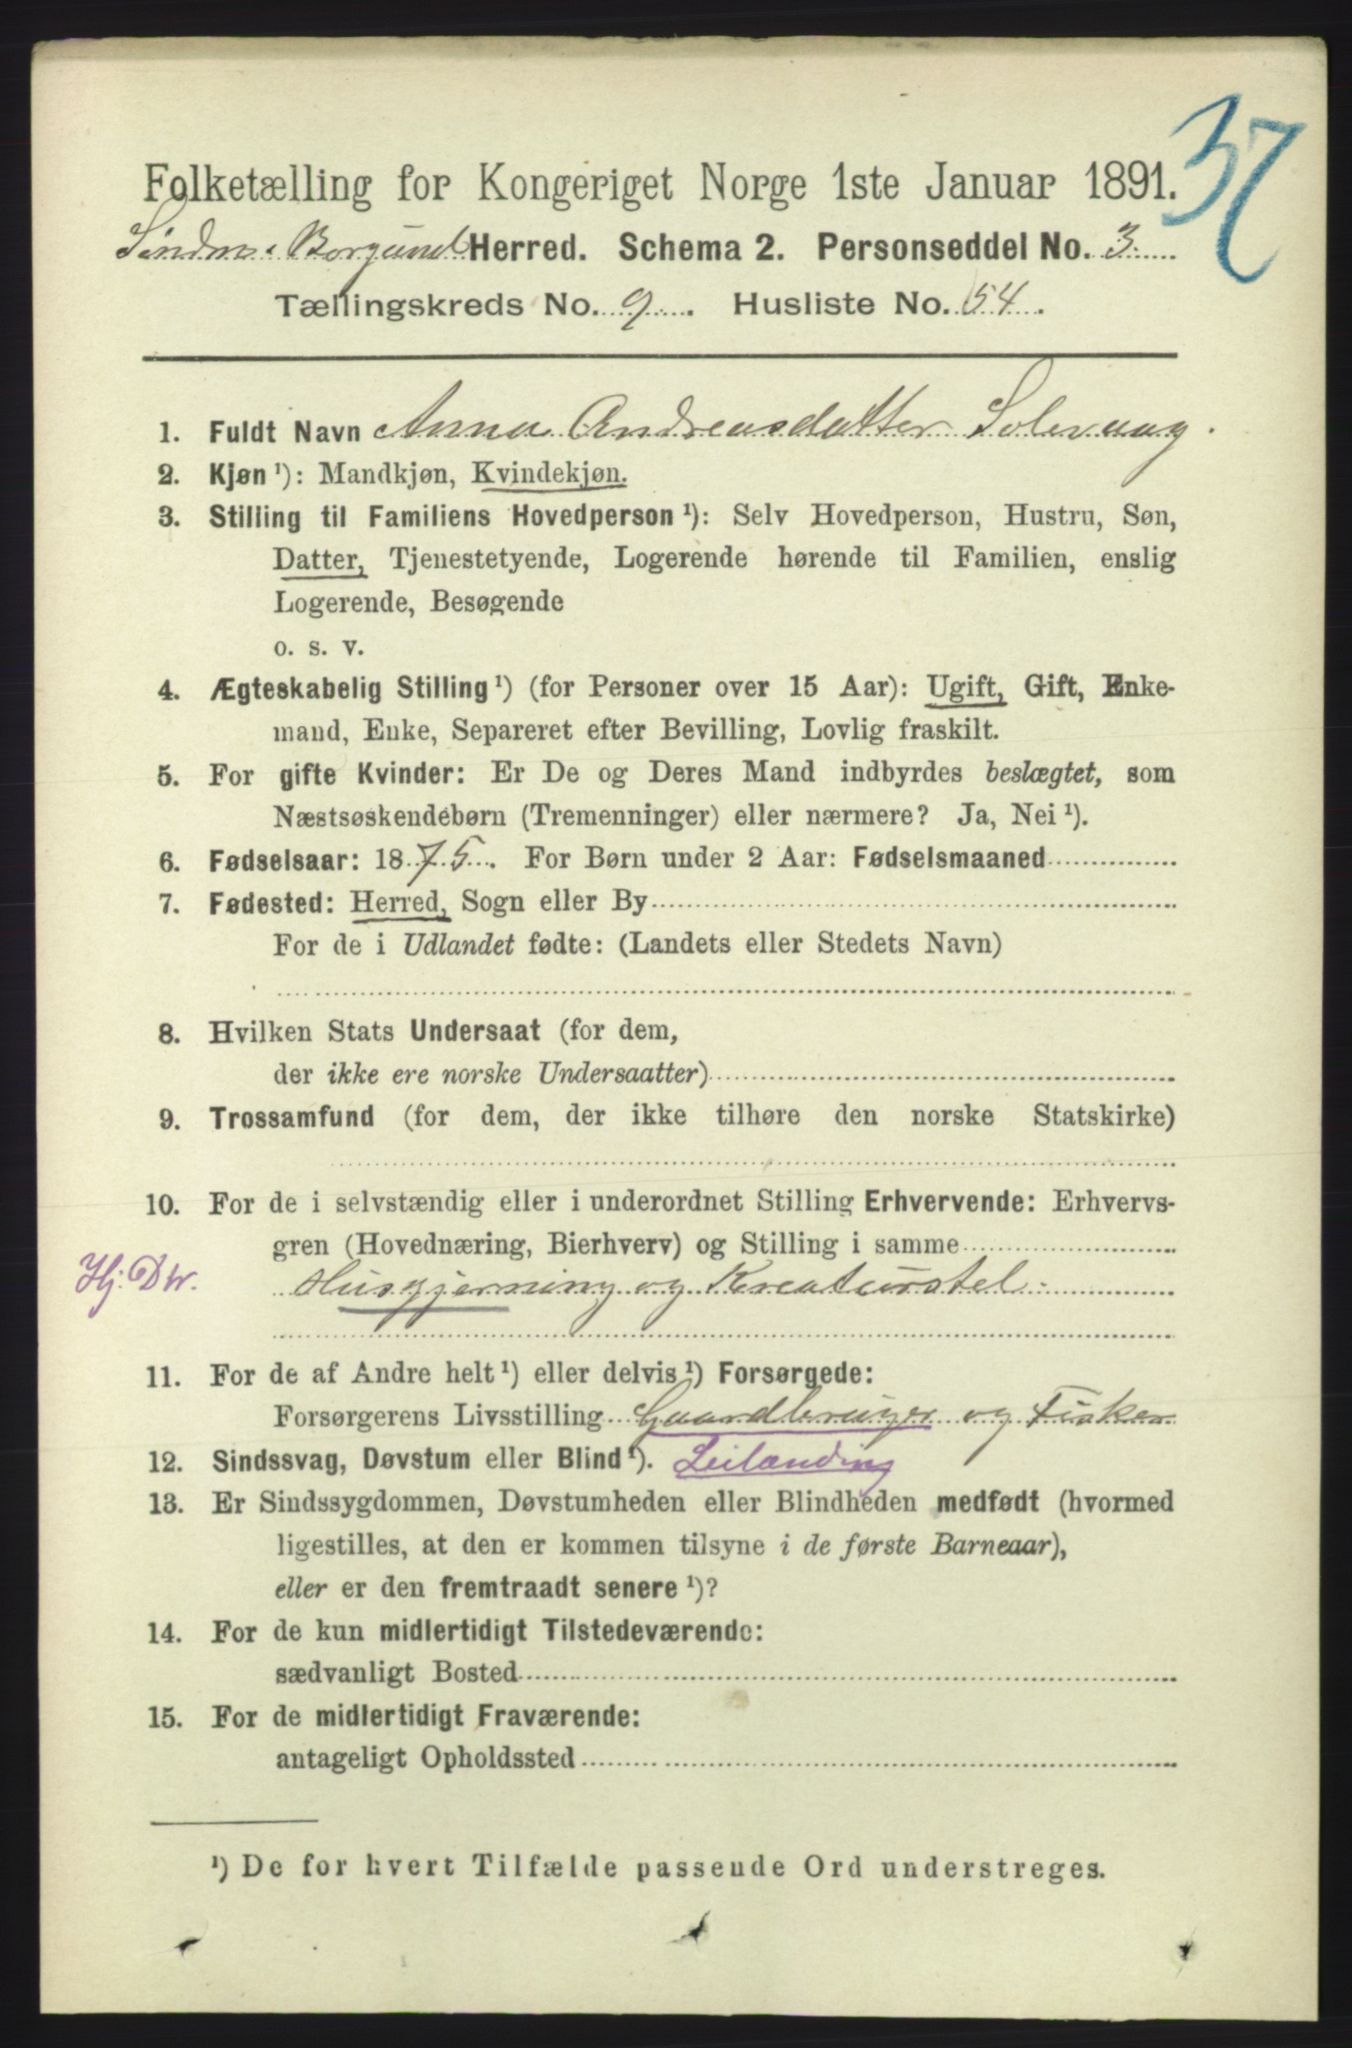 37
Folketælling for Kongeriget Norge 1ste Januar 1891.
Søndm. Borgund Herred. Schema 2. Personseddel No. 3.
Tællingskreds No. 9. Husliste No. 54.
1. Fuldt Navn Anna Andreasdatter Solevaag.
2. Kjøn ¹): Mandkjøn, Kvindekjøn.
3. Stilling til Familiens Hovedperson ¹): Selv Hovedperson, Hustru, Søn,
Datter, Tjenestetyende, Logerende hørende til Familien, enslig
Logerende, Besøgende
o. s. v.
4. Ægteskabelig Stilling ¹) (for Personer over 15 Aar): Ugift, Gift, Enke-
mand, Enke, Separeret efter Bevilling, Lovlig fraskilt.
5. For gifte Kvinder: Er De og Deres Mand indbyrdes beslægtet, som
Næstsøskendebørn (Tremenninger) eller nærmere? Ja, Nei ¹).
6. Fødselsaar: 1875. For Børn under 2 Aar: Fødselsmaaned
7. Fødested: Herred, Sogn eller By
For de i Udlandet fødte: (Landets eller Stedets Navn)
8. Hvilken Stats Undersaat (for dem,
der ikke ere norske Undersaatter)
9. Trossamfund (for dem, der ikke tilhøre den norske Statskirke)
10. For de i selvstændig eller i underordnet Stilling Erhvervende: Erhvervs-
gren (Hovednæring, Bierhverv) og Stilling i samme
Hj. Dtr. Husgjerning og Kreaturstel.
11. For de af Andre helt ¹) eller delvis ¹) Forsørgede:
Forsørgerens Livsstilling Gaardbruger og Fisker
12. Sindssvag, Døvstum eller Blind ¹). Leilænding
13. Er Sindssygdommen, Døvstumheden eller Blindheden medfødt (hvormed
ligestilles, at den er kommen tilsyne i de første Barneaar),
eller er den fremtraadt senere ¹)?
14. For de kun midlertidigt Tilstedeværende:
sædvanligt Bosted
15. For de midlertidigt Fraværende:
antageligt Opholdssted
¹) De for hvert Tilfælde passende Ord understreges.